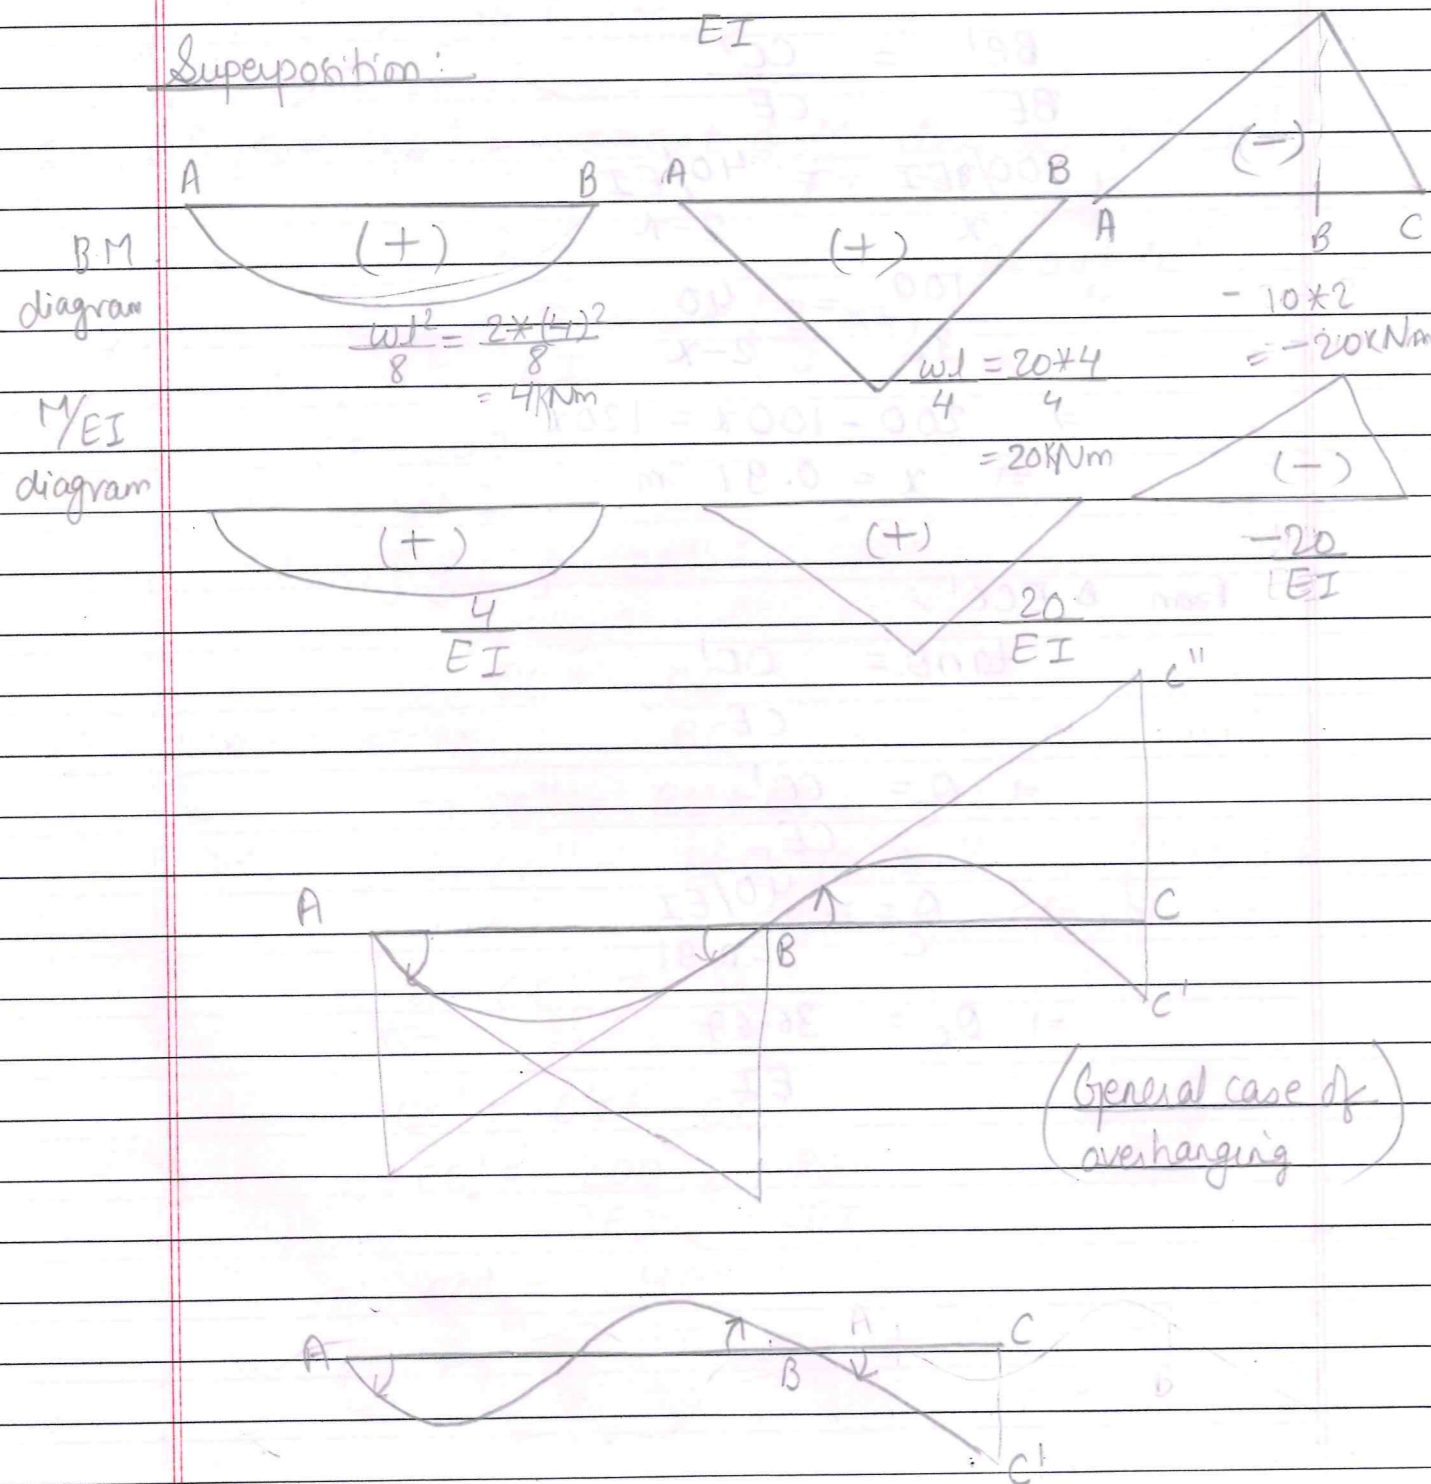 EI
Superposition:
A B A B
(+) (+) (-)
A B C
B.M
diagram
wl²/8 = 2*(4)²/8
= 4kNm
wl/4 = 20*4/4
= 20kNm
- 10*2
= -20kNm
M/EI
diagram
(+) (+) (-)
4/EI
20/EI
-20/EI
C"
A B C
C'
(General case of
overhanging)
A B C
C'